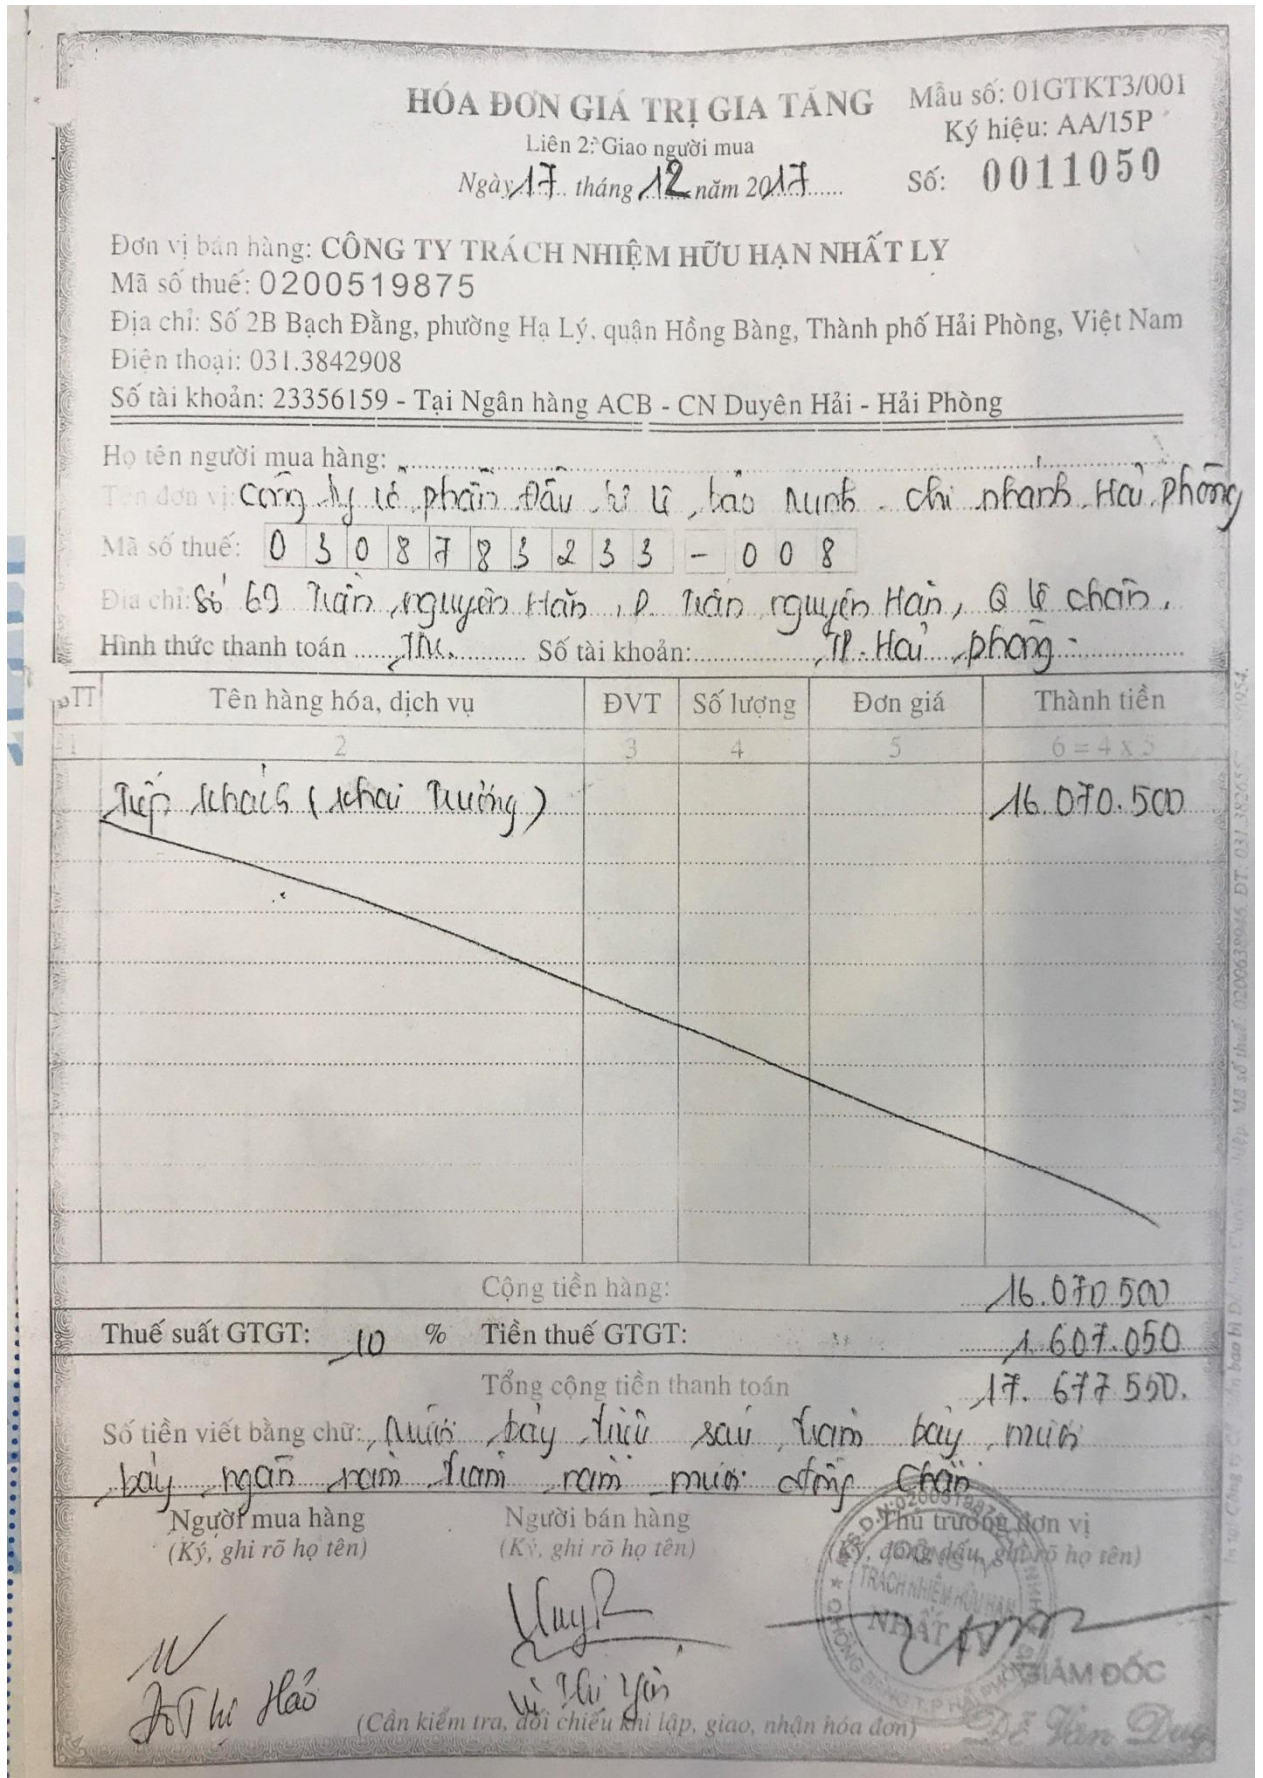 HÓA ĐƠN GIÁ TRỊ GIA TĂNG
Mẫu số: 01GTKT3/001
Liên 2: Giao người mua
Ký hiệu: AA/15P
Ngày 17 tháng 12 năm 2017
Số: 0011050
Đơn vị bán hàng: CÔNG TY TRÁCH NHIỆM HỮU HẠN NHẤT LY
Mã số thuế: 0200519875
Địa chỉ: Số 2B Bạch Đằng, phường Hạ Lý, quận Hồng Bàng, Thành phố Hải Phòng, Việt Nam
Điện thoại: 031.3842908
Số tài khoản: 23356159 - Tại Ngân hàng ACB - CN Duyên Hải - Hải Phòng
Họ tên người mua hàng:
Tên đơn vị: Công ty cổ phần Đầu tư lê bảo minh - chi nhánh Hải Phòng
Mã số thuế: 0308783233 - 008
Địa chỉ: Số 69 Trần nguyên Hãn, P. Trần nguyên Hãn, Q lê chân,
Hình thức thanh toán TM. Số tài khoản: TP. Hải phòng -
TT Tên hàng hóa, dịch vụ ĐVT Số lượng Đơn giá Thành tiền
1 2 3 4 5 6 = 4 x 5
Tiếp khách (khai trương) 16.070.500
Cộng tiền hàng: 16.070.500
Thuế suất GTGT: 10 % Tiền thuế GTGT: 1.607.050
Tổng cộng tiền thanh toán 17.677.550.
Số tiền viết bằng chữ: Mười bảy triệu sáu trăm bảy mươi
bảy ngàn năm trăm năm mươi đồng chẵn
Người mua hàng Người bán hàng Thủ trưởng đơn vị
(Ký, ghi rõ họ tên) (Ký, ghi rõ họ tên) (Ký, đóng dấu, ghi rõ họ tên)
CÔNG TY
TRÁCH NHIỆM HỮU HẠN
NHẤT LY
GIÁM ĐỐC
Thị Hảo
Thị Yến
(Cần kiểm tra, đối chiếu khi lập, giao, nhận hóa đơn)
Văn Duy